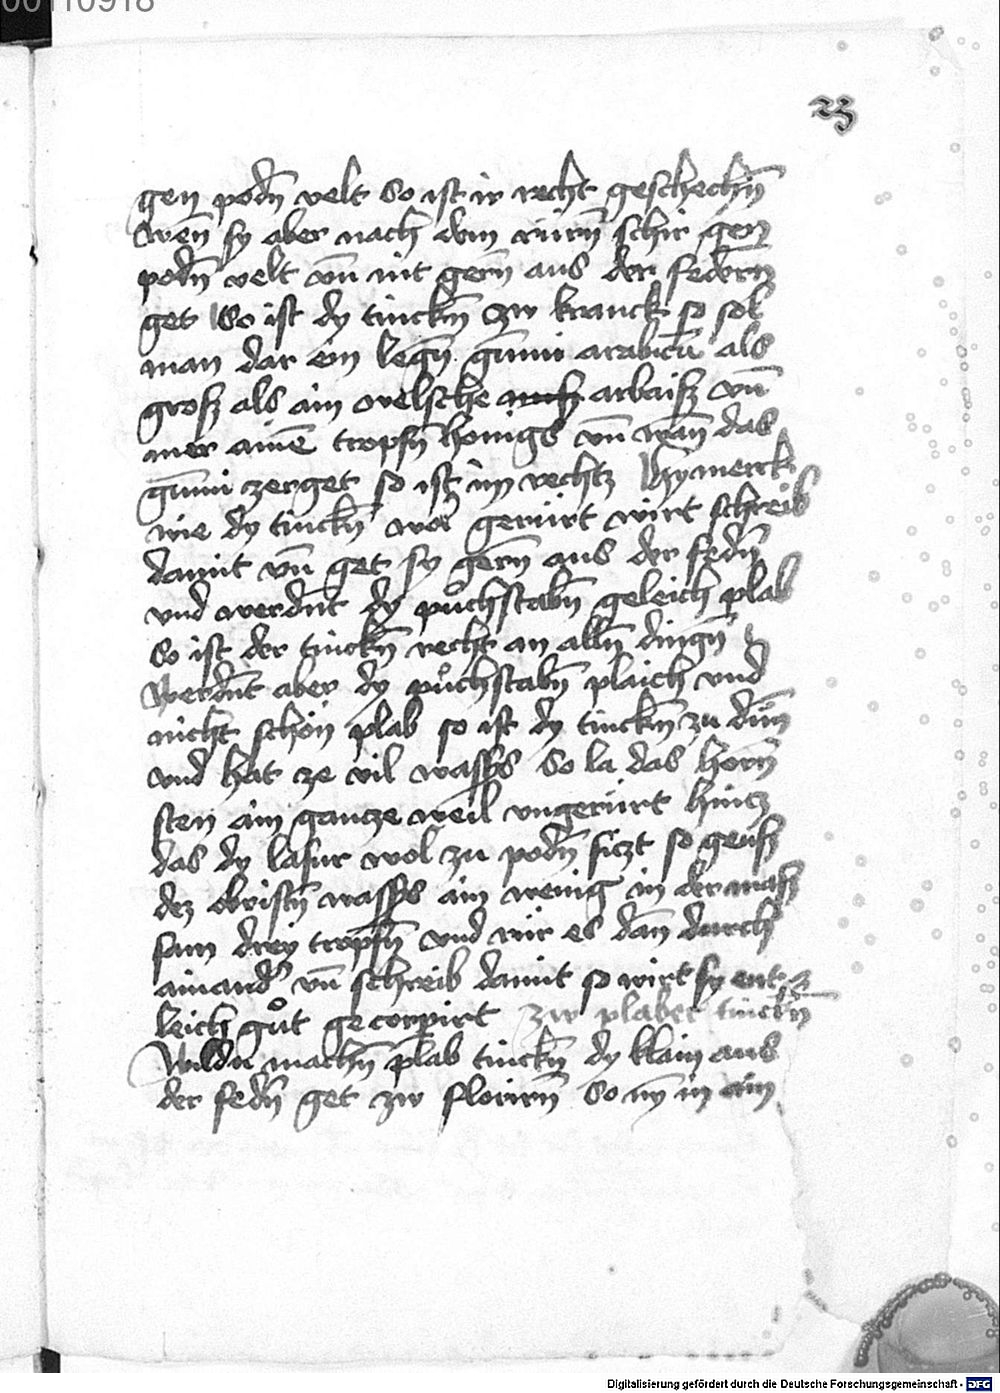 00110918
23
gen podn̄ velt So ist ir recht geschechn̄
Wen̄ sy aber nach dem rürn̄ schir gen
podn̄ velt vn̄ nit gern̄ aus der federn
get So ist dy tinckn̄ zw kranck so sol
man dar ein legn̄ gūmi arabicū als
grosz als ain welsche nusz arbaisz vn̄
mer ainē tropfn̄ honigs vn̄ wan̄ das
gūmi zerget so ist im rechtz Hy merck
wie dy tinckn̄ wol gerürt wirt schreib
damit vn̄ get sy gern̄ aus der fedn̄
vnd werdn̄t dy půchstabn̄ geleich plab
So ist der tinckn̄ recht an alln̄ dingn̄
Werdn̄t aber dy půchstabn̄ plaich vnd
nicht schön plab so ist dy tinckn̄ zu dün̄
vnd hat ze vil wassers So la das horn̄
sten ain gantze weil vngerürt hintz
das dy lasur wol zu podn̄ siczt so geusz
dez obristn̄ wassers ain wenig in der masz
sam drey tropfn̄ vnd rür es dan̄ durch
ainand' vn̄ schreib damit so wirt sy ent
leich gůt gecorpirt zw plaber tinckn̄
Wildu machn̄ plab tinckn̄ dy klain aus
der fedn̄ get zw florirn̄ So nȳ in ain
Digitalisierung gefördert durch die Deutsche Forschungsgemeinschaft - DFG